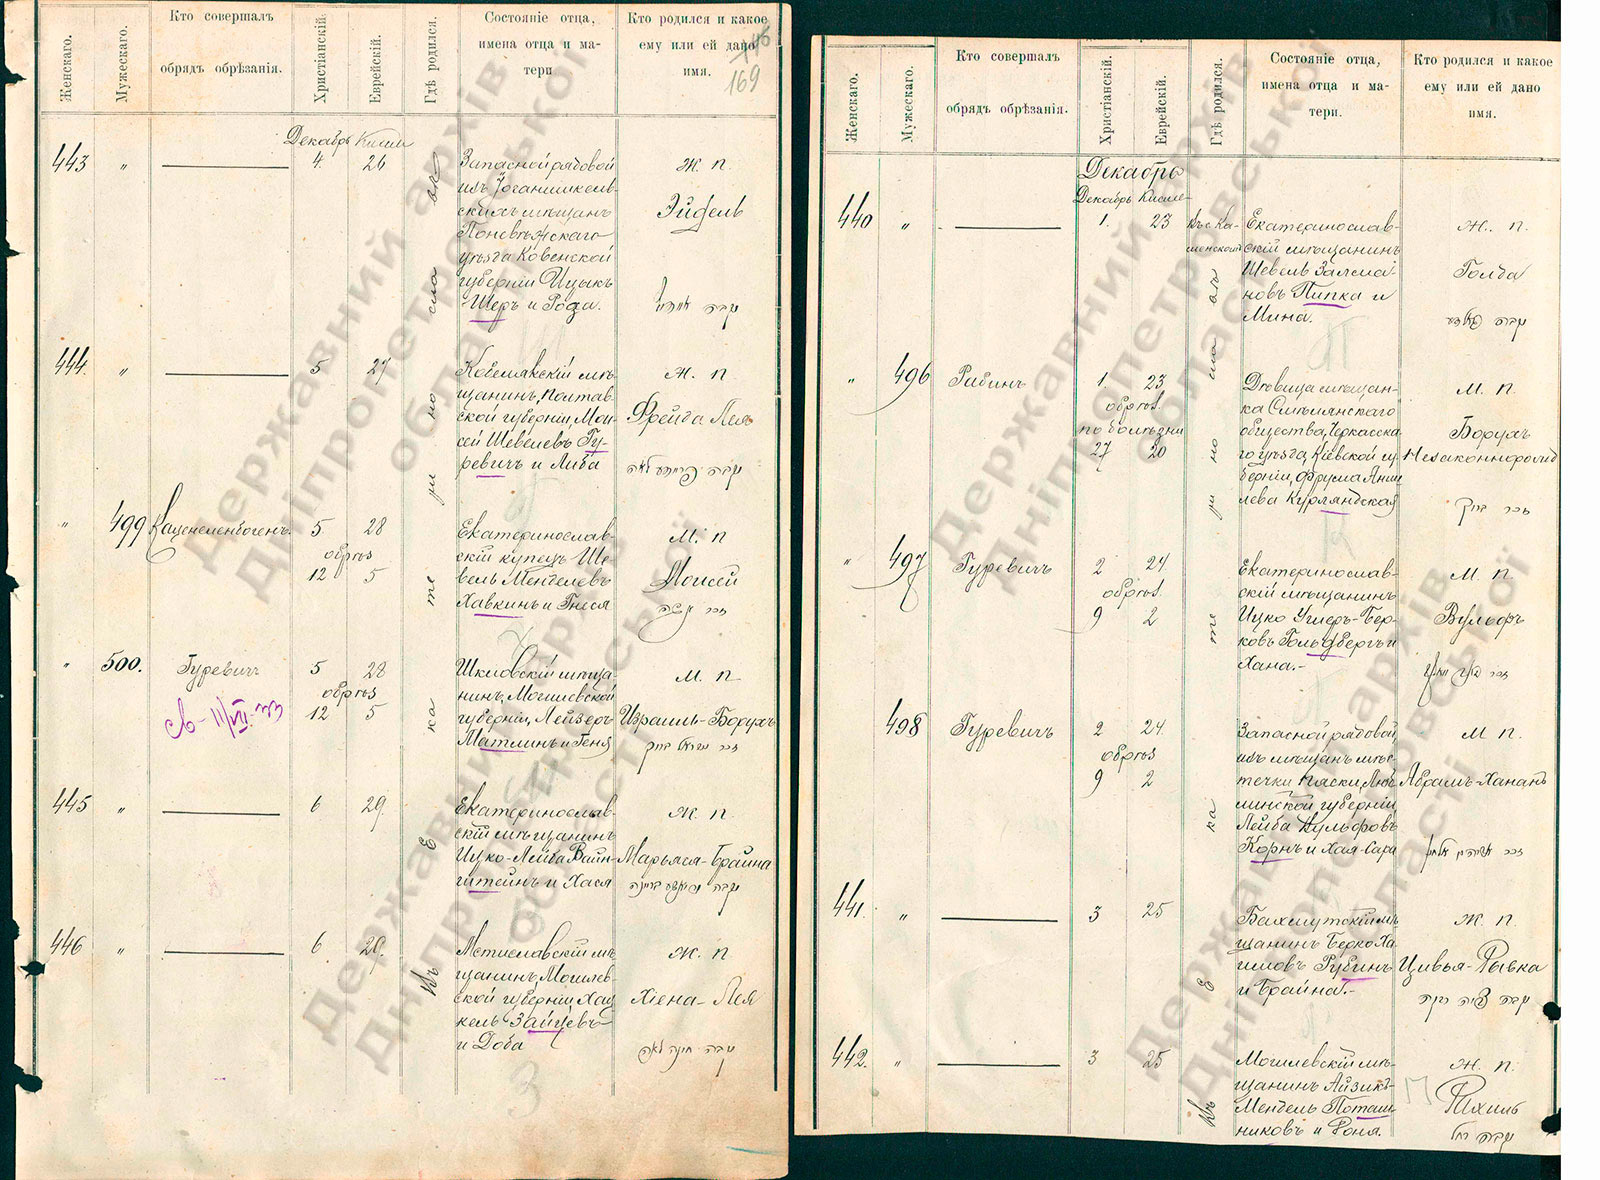 Женскаго.
Мужескаго.
Кто совершалъ
обрядъ обрѣзанія.
Христіанскій.
Еврейскій.
Гдѣ родился.
Состояніе отца,
имена отца и ма-
тери
Кто родился и какое
ему или ей дано
имя.
169
Декабрь Кислев
443 " 4. 26
Запасной рядовой
изъ
скихъ мѣщанъ
Поневѣжскаго
уѣзда Ковенской
губерніи Ицыкъ
Шеръ и Рода.
Ж. П.
Эйдель
444. " 5 27
Кобелякскій мѣ-
щанинъ, Полтав-
ской губерніи, Мои-
сей Шевелевъ Гу-
ревичъ и Либа
Ж. П.
Фрейда Лея
" 499 Каценеленбогенъ. 5 28
обрѣз
12 5
Екатеринослав-
скій купецъ Ше-
вель Менделевъ
Хавкинъ и Гнеся
М. П
Моисей
" 500. Гуревичъ 5 28
обрѣз
12 5
Шкловскій мѣща-
нинъ, Могилевской
губерніи, Лейзеръ
Матлинъ и Геня
М. П.
Израиль-Борухъ
445 " 6 29.
Екатеринослав-
скій мѣщанинъ
Ицко-Лейба Вайн-
штейнъ и Хася
Ж. П.
Марьяся-Брайна
446 " 6. 29.
Мстиславскій мѣ-
щанинъ, Могилев-
ской губерніи Хац-
кель Зайцевъ
и Доба
Ж. П
Хіена-Лея
Въ Екатеринославѣ
Женскаго.
Мужескаго.
Кто совершалъ
обрядъ обрѣзанія.
Христіанскій.
Еврейскій.
Гдѣ родился.
Состояніе отца,
имена отца и ма-
тери.
Кто родился и какое
ему или ей дано
имя.
Декабрь
Декабрь Кислев
440 " 1. 23
Въ с. Ка-
менской
Екатеринослав-
скій мѣщанинъ
Шевель Залма-
новъ Пипка и
Мина.
Ж. П.
Голда
" 496 Рабинъ 1. 23
обрѣз.
по болѣзни
27 20
Дѣвица мѣщан-
ка Смѣлянскаго
общества, Черкасска-
го уѣзда, Кіевской гу-
берніи, Фрума Анш-
лева Курляндская
М. П
Борухъ
Незаконнорожд
" 497 Гуревичъ 2 24
обрѣз.
9 2
Екатеринослав-
скій мѣщанинъ
Ицко Ушеръ-Бер-
ковъ Гольдбергъ и
Хана.-
М. П.
Вульфъ
498 Гуревичъ 2 24.
обрѣз
9 2
Запасной рядовой,
изъ мѣщанъ мѣс-
течки Пяски, Люб-
линской губерніи,
Лейба Вульфовъ
Корнъ и Хая-Сара
М П.
Абрамъ-Хананъ
441. " 3 25
Бахмутскій мѣ-
щанинъ Берко Ха-
имовъ Рубинъ
и Брайна.-
Ж. П.
Цивья-Рывка
442. " 3 25
Могилевскій мѣ-
щанинъ Айзикъ-
Мендель Поташ-
никовъ и Роня.
Ж. П.
Рахиль
Въ Екатеринославѣ
Державний архів
Дніпропетровської
області